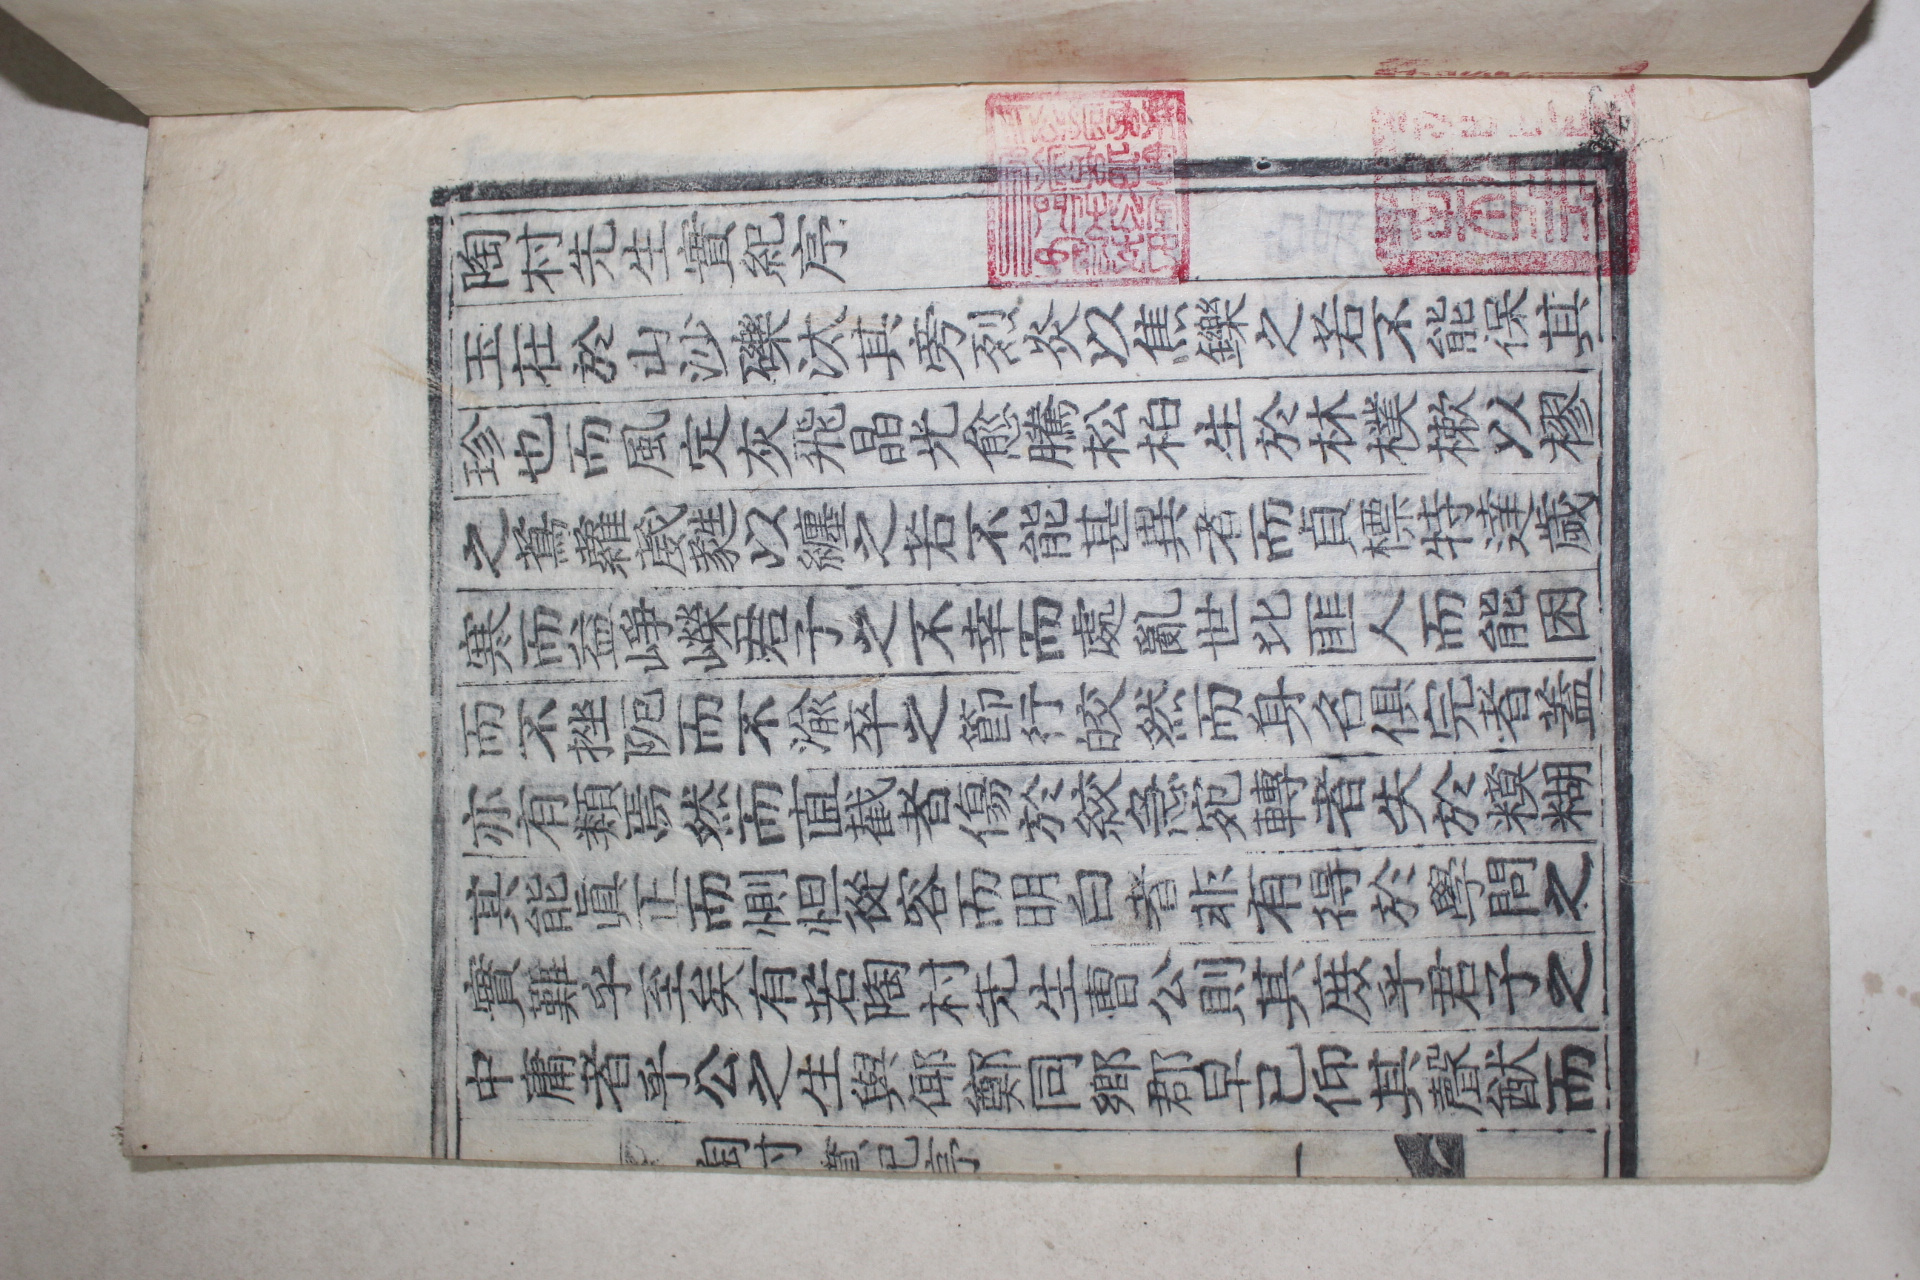 陶村先生實紀序
玉在於山沙礫汰其旁烈炎以焦鑠之若不能保其
珍也而風定灰飛晶光愈騰松柏生於林樸樕以樛
之蔦蘿以纏之若不能甚異者而貞標特達歲
寒而益崢嶸君子之不幸而處亂世比匪人而能困
而不挫阨而不渝卒之節行皎然而身名俱完者蓋
亦有類焉然而直截者傷於絞急宛轉者失於糢糊
其能眞正而惻怛從容而明白者非有得於學問之
實難乎至矣有若陶村先生曺公則其庶乎君子之
中庸者乎公之生與鄭同鄕郡早已仰其聲猷而
陶村實紀序 一